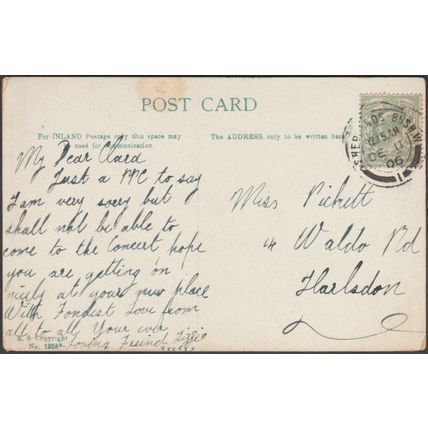 POST CARD
For INLAND Postage only this space may
used for communication.
The ADDRESS only to be written here
My Dear Clara
Just a PPC to say
I am very sorry but
shall not be able to
come to the Concert hope
you are getting on
nicely at your new place
With Fondest Love from
all to all Your ever
Loving Freind Lizzie
xxxxx
E. S Copyright
No. 1258A.
Miss Pickett
14 Waldo Rd
Harlsdon
SHEPHERDS BUSH W
12.15 AM
DE 11
06
1